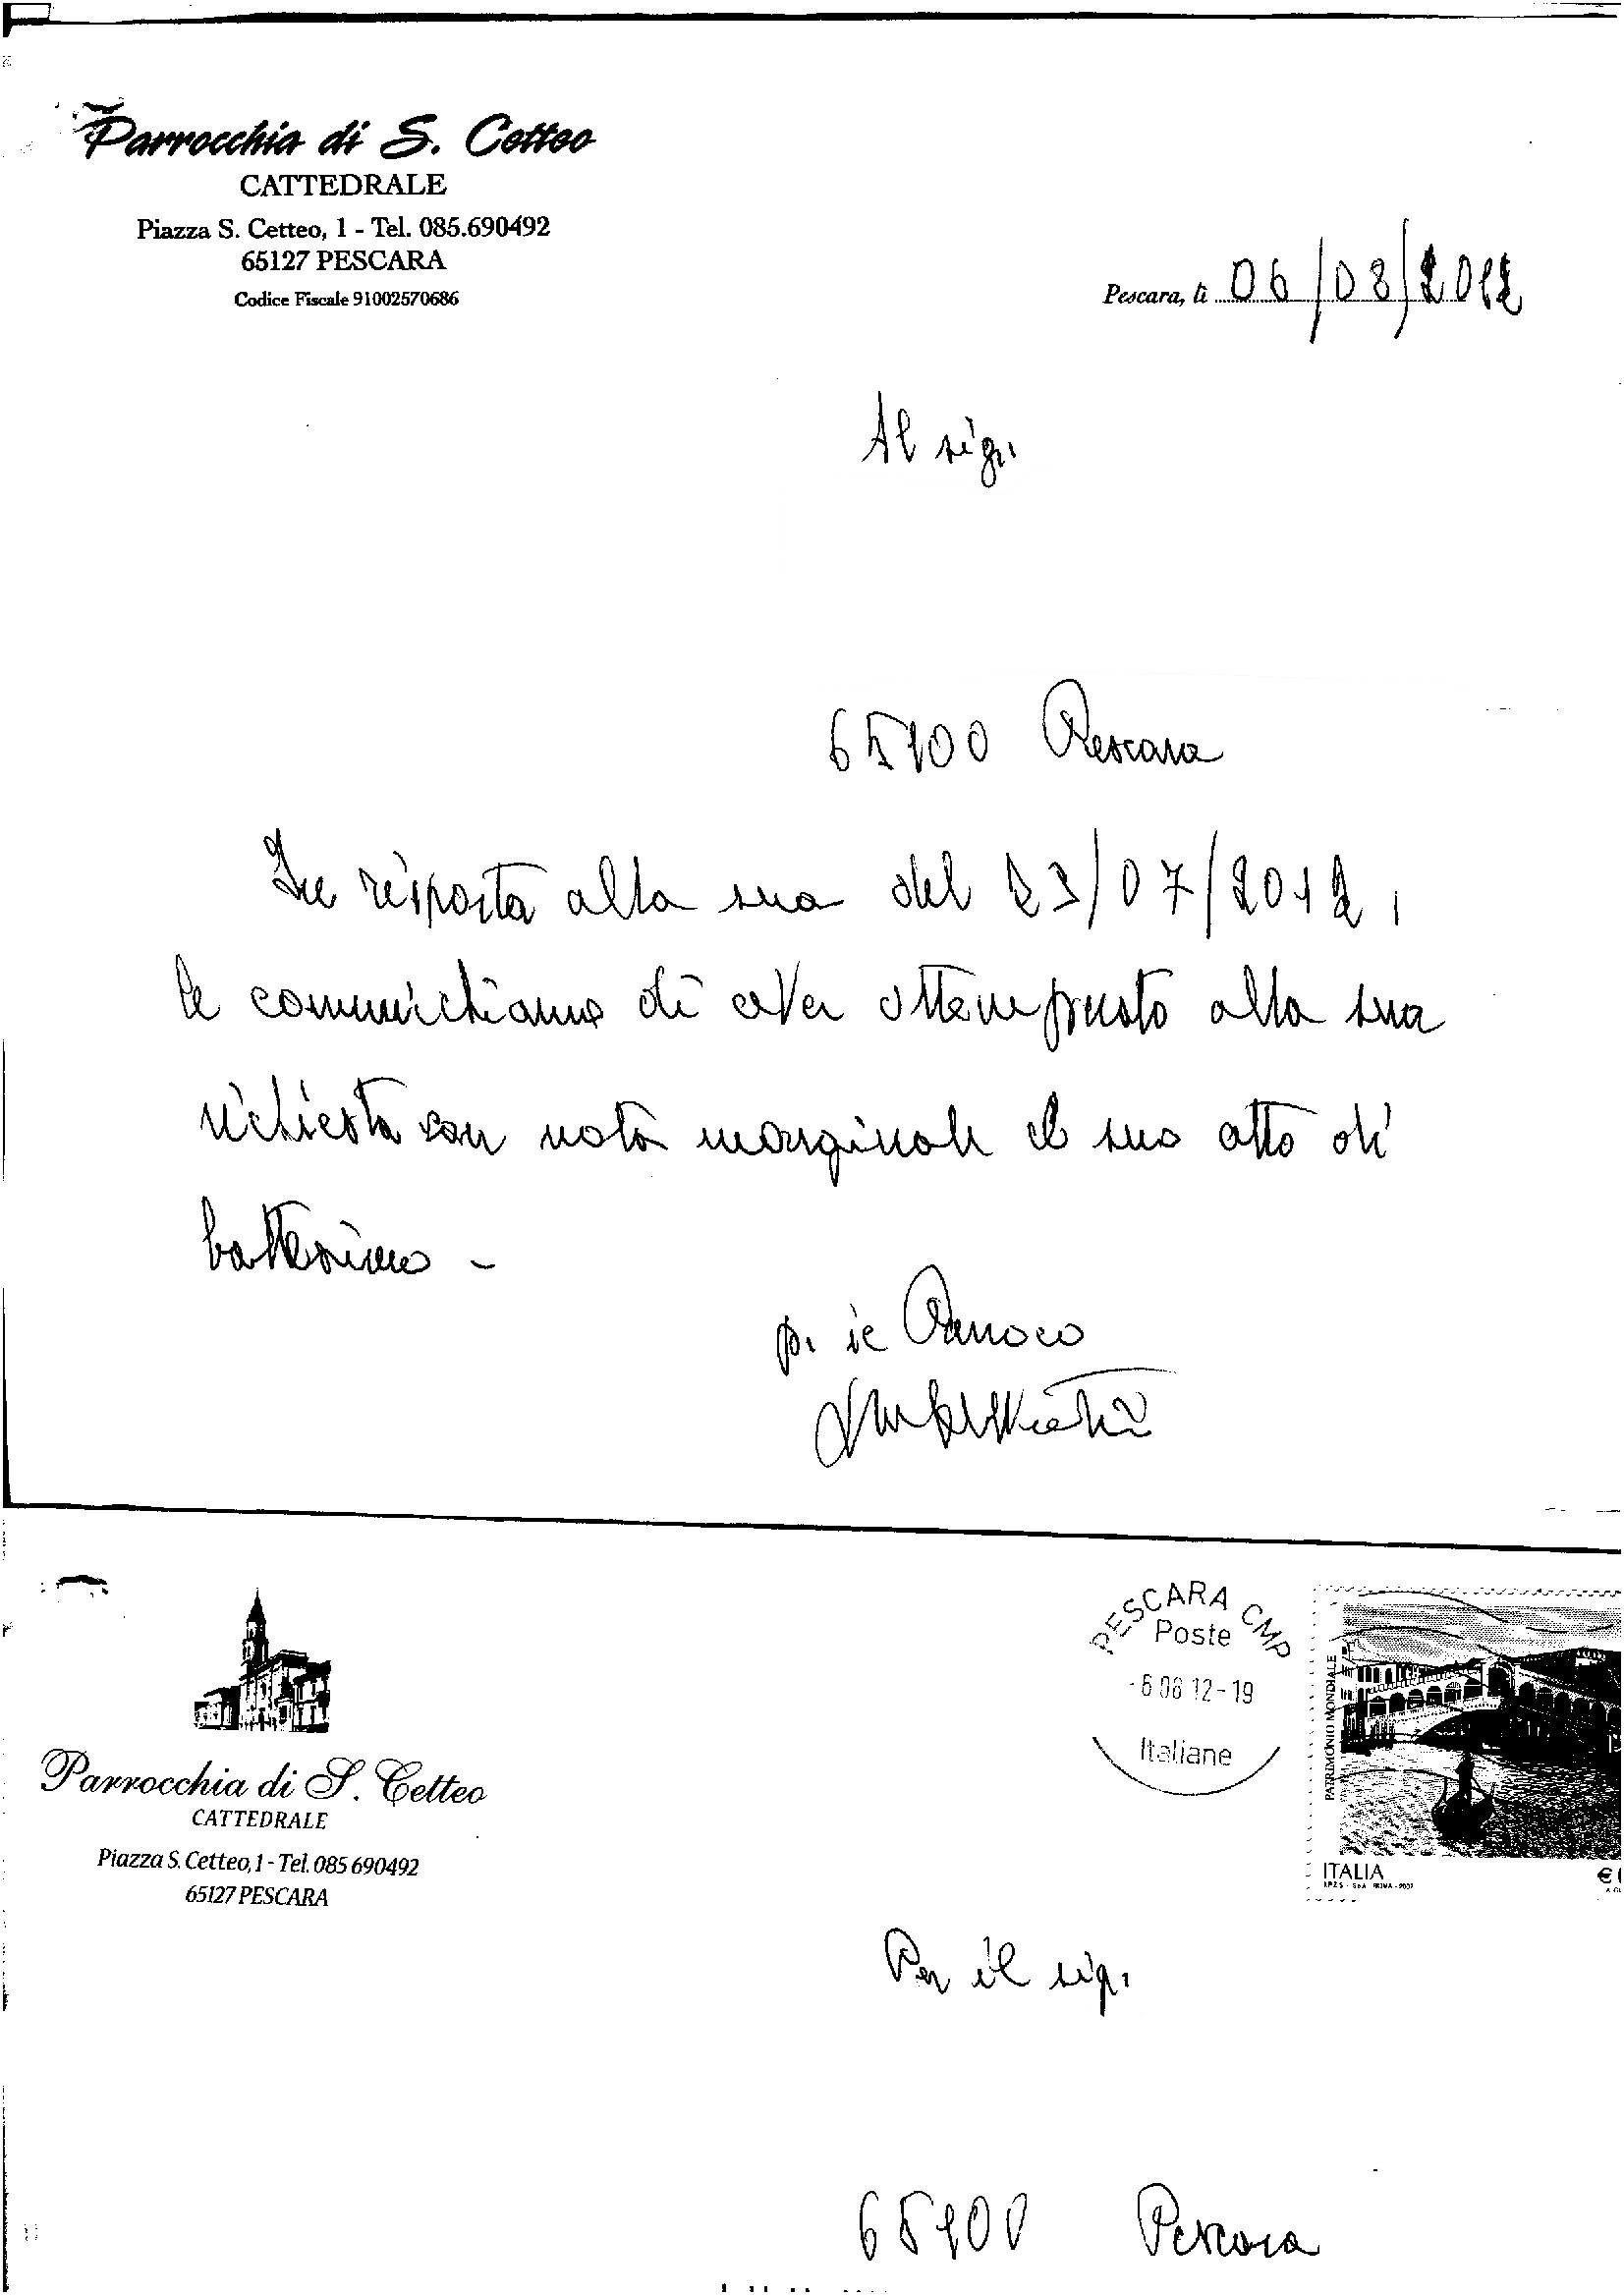 Parrocchia di S. Cetteo
CATTEDRALE
Piazza S. Cetteo, 1 - Tel. 085.690492
65127 PESCARA
Codice Fiscale 91002570686
Pescara, lì 06/08/2012
Al sig.
65100 Pescara
In risposta alla sua del 23/07/2012,
le comunichiamo di aver ottemperato alla sua
richiesta con nota marginale al suo atto di
battesimo -
p. il Parroco
PESCARA CMP
Poste
-6 08 12-19
Italiane
PATRIMONIO MONDIALE
ITALIA
I.P.Z.S. - S.p.A. ROMA - 2007
€
Parrocchia di S. Cetteo
CATTEDRALE
Piazza S. Cetteo, 1 - Tel. 085 690492
65127 PESCARA
Per il sig.
65100 Pescara